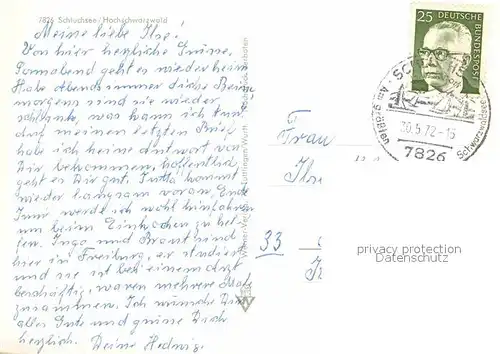 7826 Schluchsee / Hochschwarzwald
Meine liebe Ilse!
Von hier herzliche Grüsse.
Sonnabend geht es wieder heim
Habe Abends immer dicke Beine
morgens sind sie wieder
schlank, was kann ich tun
Auf meinen letzten Brief
habe ich keine Antwort von
Dir bekommen, hoffentlich
geht es Dir gut. Jutta kommt
wieder langsam voran, Ende
Juni werde ich wohl hinfahren
um beim Einkochen zu hel-
fen. Ingo und Braut sind
hier in Freiburg, er studiert
und sie ist bei einem Arzt
beschäftigt, waren mehrere Mal
zusammen. Ich wünsche Dir
alles Gute und grüsse Dich
herzlich. Deine Hedwig.
Tuttlingen-Württ.
25
DEUTSCHE
BUNDESPOST
30.5.72-15
7826
Am größten
Schwarzwaldsee
Frau
Ilse
33
privacy protection
Datenschutz